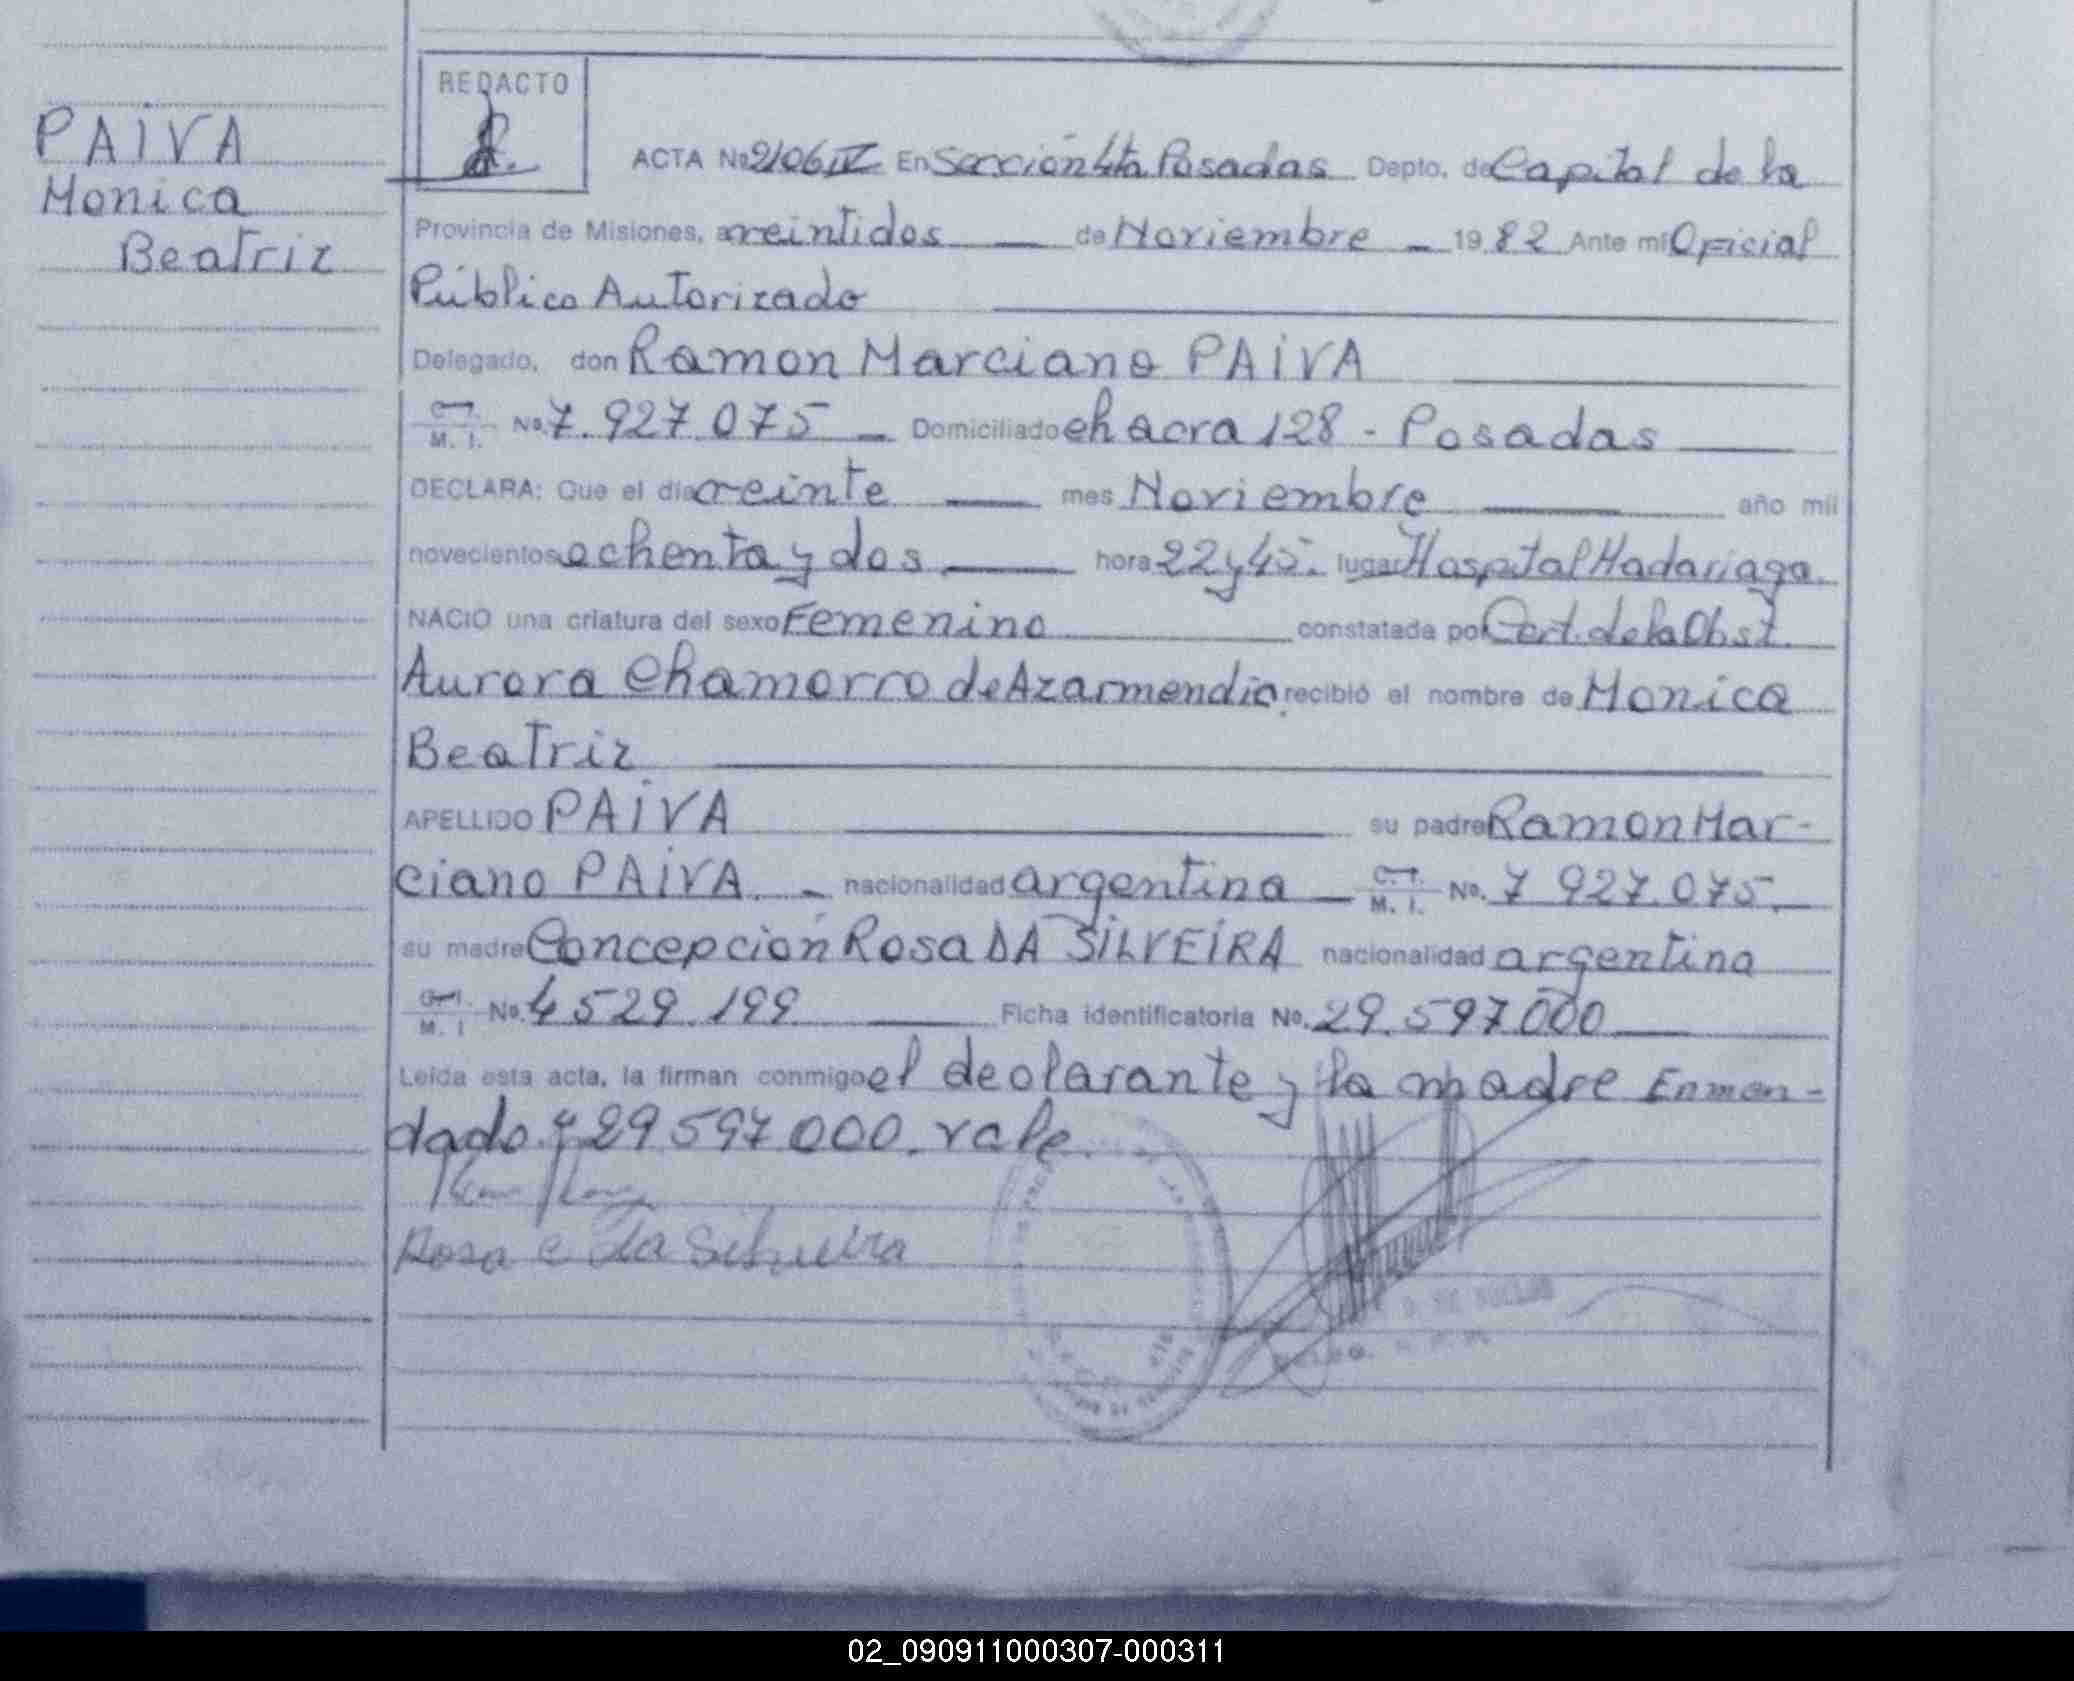 PAIVA
Monica
Beatriz
REDACTO
ACTA No 2106 IV En Sección 4ta Posadas Depto. de Capital de la
Provincia de Misiones, a veintidos de Noviembre 19 82 Ante mi Oficial
Público Autorizado
Delegado, don Ramon Marciano PAIVA
M. I. No. 7.927.075 Domiciliado chacra 128 - Posadas
DECLARA: Que el día veinte mes Noviembre año mil
novecientos ochenta y dos hora 22 y 45. lugar Hospital Madariaga.
NACIO una criatura del sexo Femenino constatada por Cert. de la Obst.
Aurora Chamorro de Azarmendia recibió el nombre de Monica
Beatriz
APELLIDO PAIVA su padre Ramon Mar-
ciano PAIVA. nacionalidad argentina M. I. No. 7 927.075
su madre Concepción Rosa DA SILVEIRA nacionalidad argentina
M. I No. 4 529.199 Ficha identificatoria No. 29.597.000
Leída esta acta, la firman conmigo el declarante y la madre Enmen-
dado: 29 597 000. vale.
Rosa c da Silveira
02_090911000307-000311